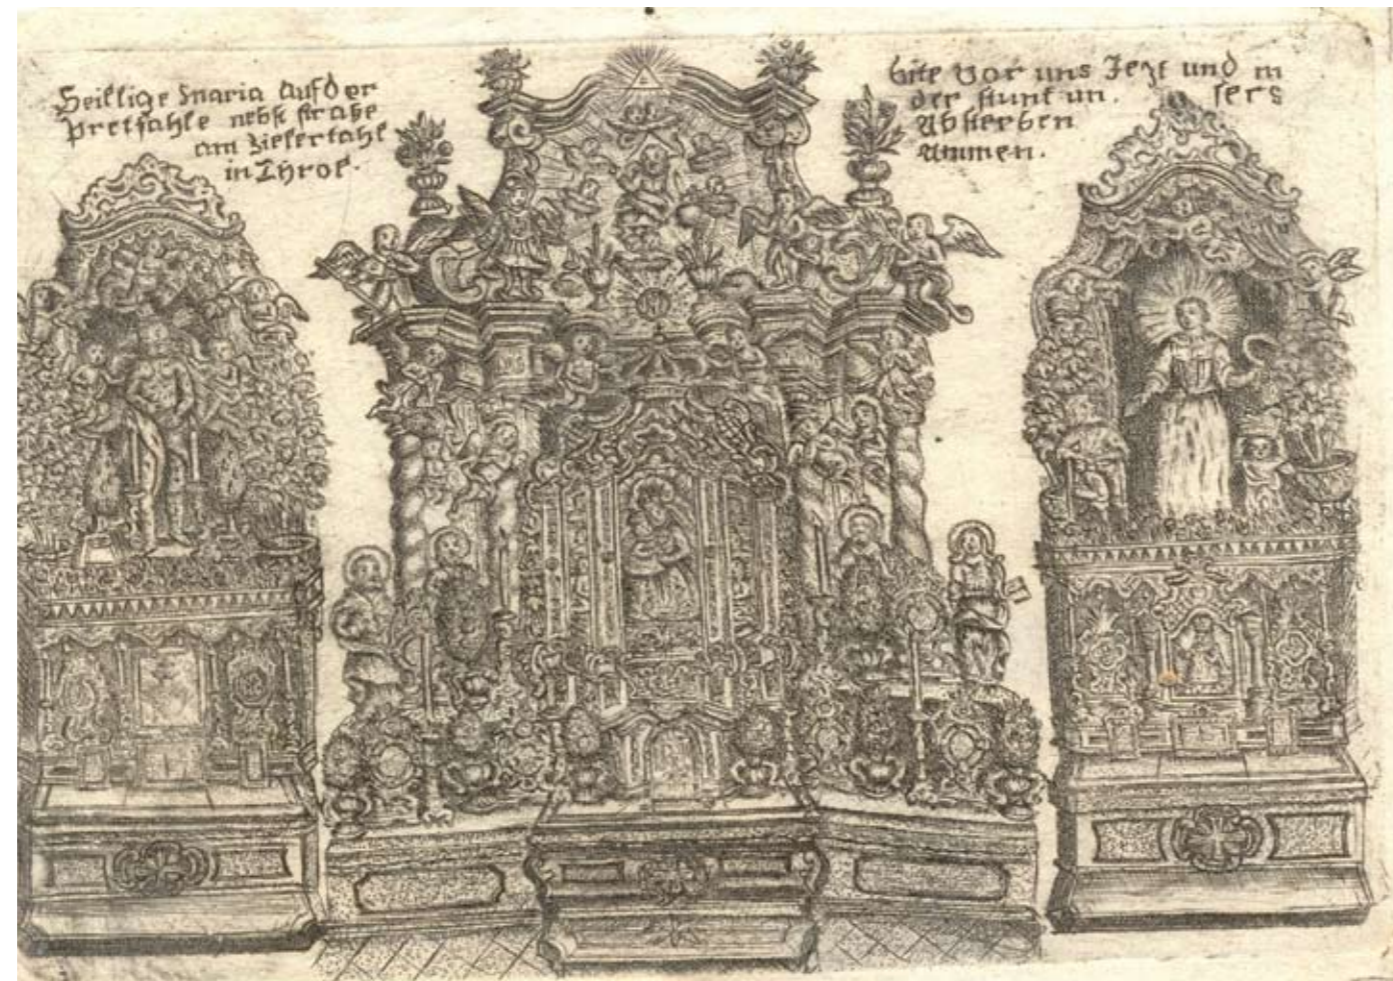 Heillige Maria Auf der
Pretfahle nebst straße
am Ziefertahl
in Tÿrol.
bite vor uns Jezt und in
der stunt un. sers
Absterben
Ammen.